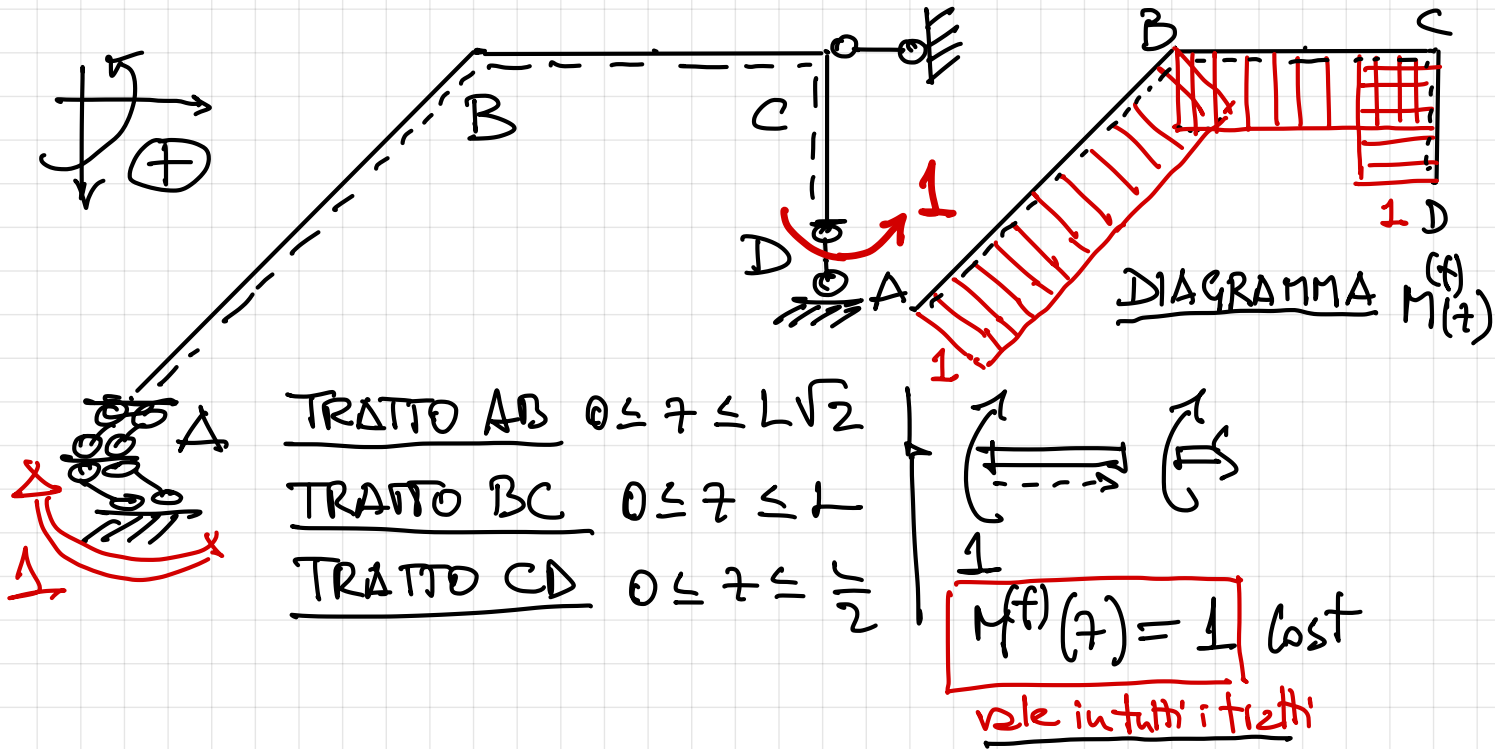 B C
B C
1
D
1 D
A
DIAGRAMMA M(f)(z)
1
A
TRATTO AB 0 ≤ z ≤ L√2
TRATTO BC 0 ≤ z ≤ L
TRATTO CD 0 ≤ z ≤ L/2
1
1
M(f)(z) = 1 cost
vale in tutti i tratti